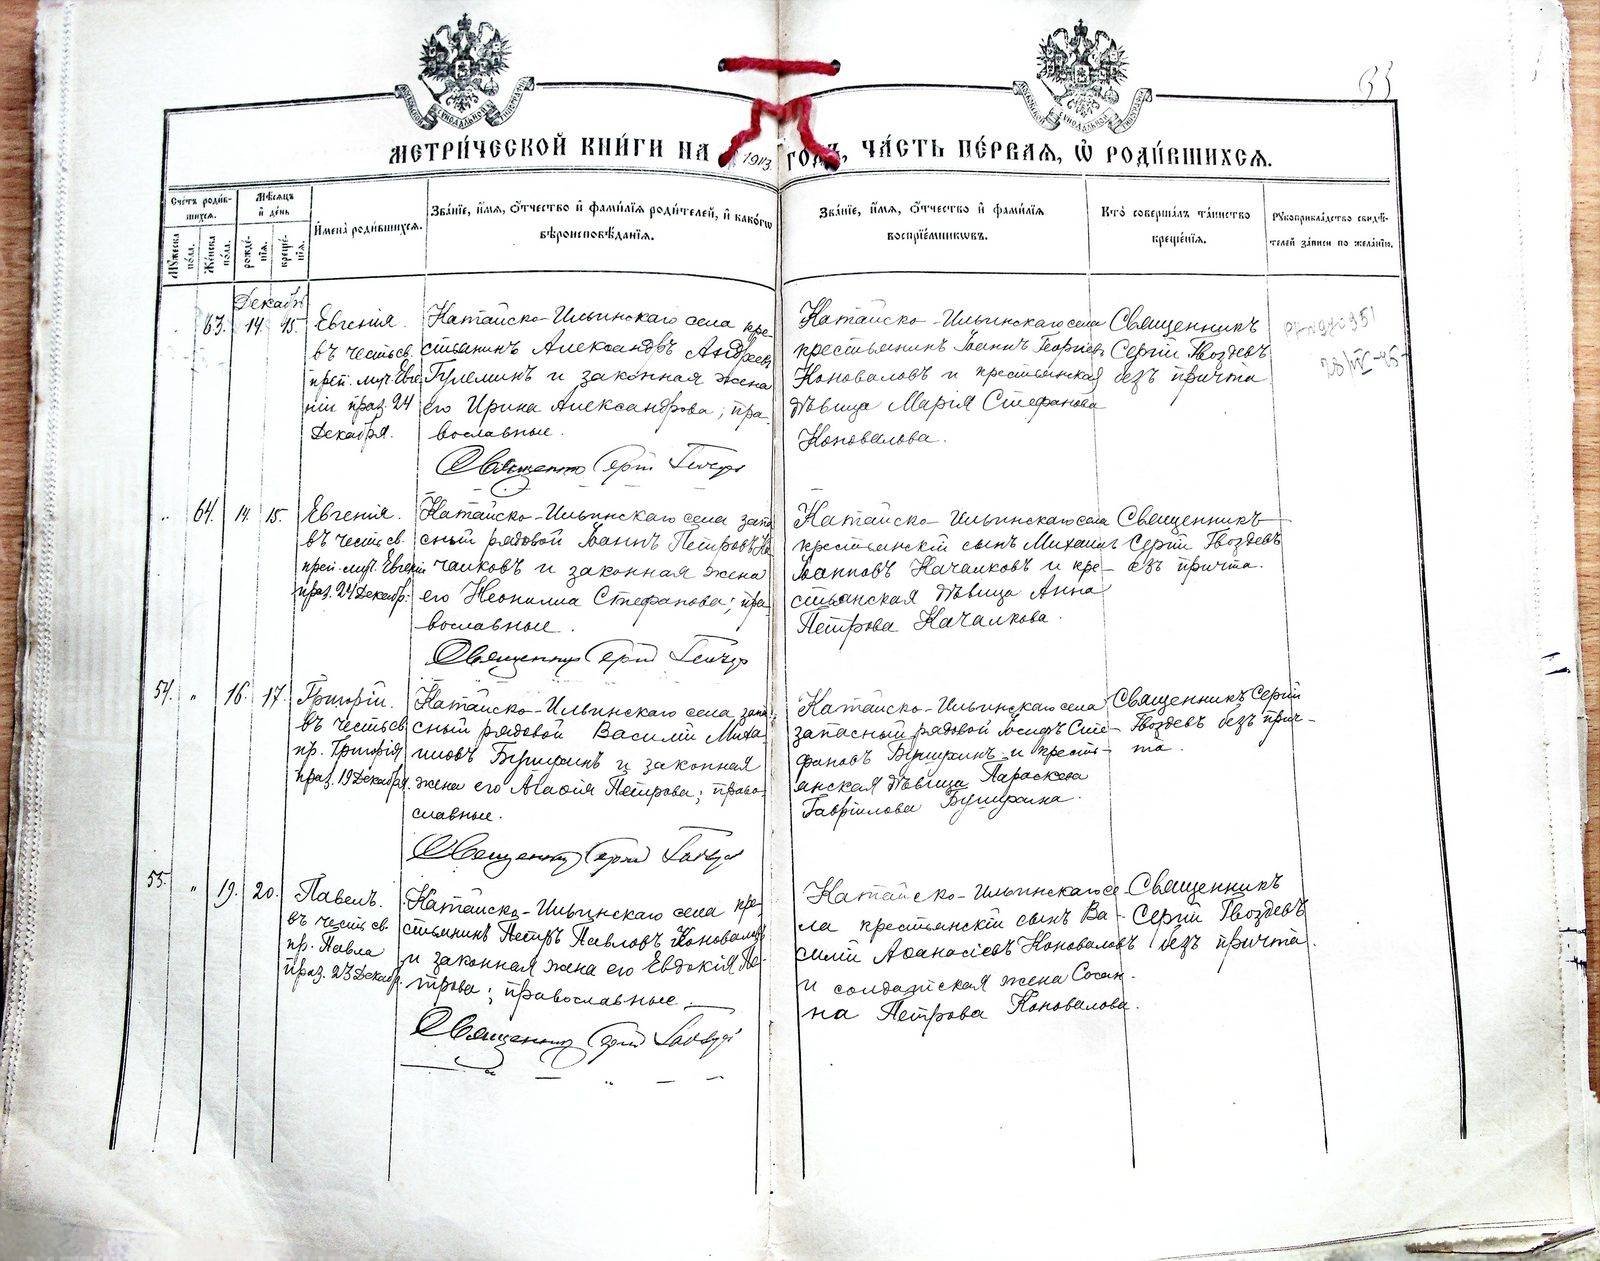 53
МЕТРИ́ЧЕСКОЙ КНИ́ГИ НА 1913 ГОДЪ, ЧА́СТЬ ПЕ́РВАЯ, Ѡ҆ РОДИ́ВШИХСЯ.
Сче́тъ роди́в-
шихся.
Мꙋ́жеска по́ла.
Же́нска по́ла.
Мѣ́сяцъ и҆ де́нь
рожде́нїѧ.
креще́нїѧ.
И҆мена̀ роди́вшихся.
Зва́нїе, и҆́мя, ѻ҆́тчество и҆ фами́лїя роди́телей, и҆ како́гѡ
вѣроисповѣ́данїя.
Зва́нїе, и҆́мя, ѻ҆́тчество и҆ фами́лїя
воспрїе́мникѡвъ.
Кто̀ соверша́лъ та́инство
креще́нїя.
Рꙋкоприкла́дство свидѣ́-
телей за́писи по жела́нїю.
Декабр
63. 14. 15.
Евгенія.
въ честь св.
преп. муч. Евге
ніи праз. 24
Декабря.
Катайско-Ильинскаго села кре-
стьянинъ Александръ Андреевъ
и законная жена
его Ирина Александрова; пра-
вославные.
Священникъ Сергій Гвоздевъ
Катайско-Ильинскаго села
крестьянинъ Іоаннъ Георгіевъ
Коноваловъ и крестьянская
дѣвица Марія Стефанова
Коновалова.
Священникъ
Сергій Гвоздевъ
безъ причта
64. 14. 15.
Евгенія.
въ честь св.
преп. муч. Евгеніи
праз. 24 Декабр.
Катайско-Ильинскаго села запа
сный рядовой Іоаннъ Петровъ Ка
чалковъ и законная жена
его Неонилла Стефанова; пра-
вославные.
Священникъ Сергій Гвоздевъ
Катайско-Ильинскаго села
крестьянскій сынъ Михаилъ
Іоанновъ Качалковъ и кре-
стьянская дѣвица Анна
Петрова Качалкова.
Священникъ
Сергій Гвоздевъ
безъ причта.
54. " 16. 17.
Григорій.
въ честь св.
пр. Григорія
праз. 19 Декабря.
Катайско-Ильинскаго села запа
сный рядовой Василій Миха-
иловъ и законная
жена его Агафія Петрова; право-
славные.
Священникъ Сергій Гвоздевъ
Катайско-Ильинскаго села
запасный рядовой Іосифъ Сте-
фановъ и кресть-
янская дѣвица Параскева
Гавріилова
Священникъ Сергій
Гвоздевъ безъ прич-
та.
55. " 19. 20.
Павелъ.
въ честь св.
пр. Павла
праз. 23 Декабр.
Катайско-Ильинскаго села кре-
стьянинъ Петръ Павловъ Коноваловъ
и законная жена его Евдокія Пе-
трова; православные.
Священникъ Сергій Гвоздевъ
Катайско-Ильинскаго се
ла крестьянскій сынъ Ва-
силій Аѳанасіевъ Коноваловъ
и солдатская жена Сосан-
на Петрова Коновалова.
Священникъ
Сергій Гвоздевъ
безъ причта.